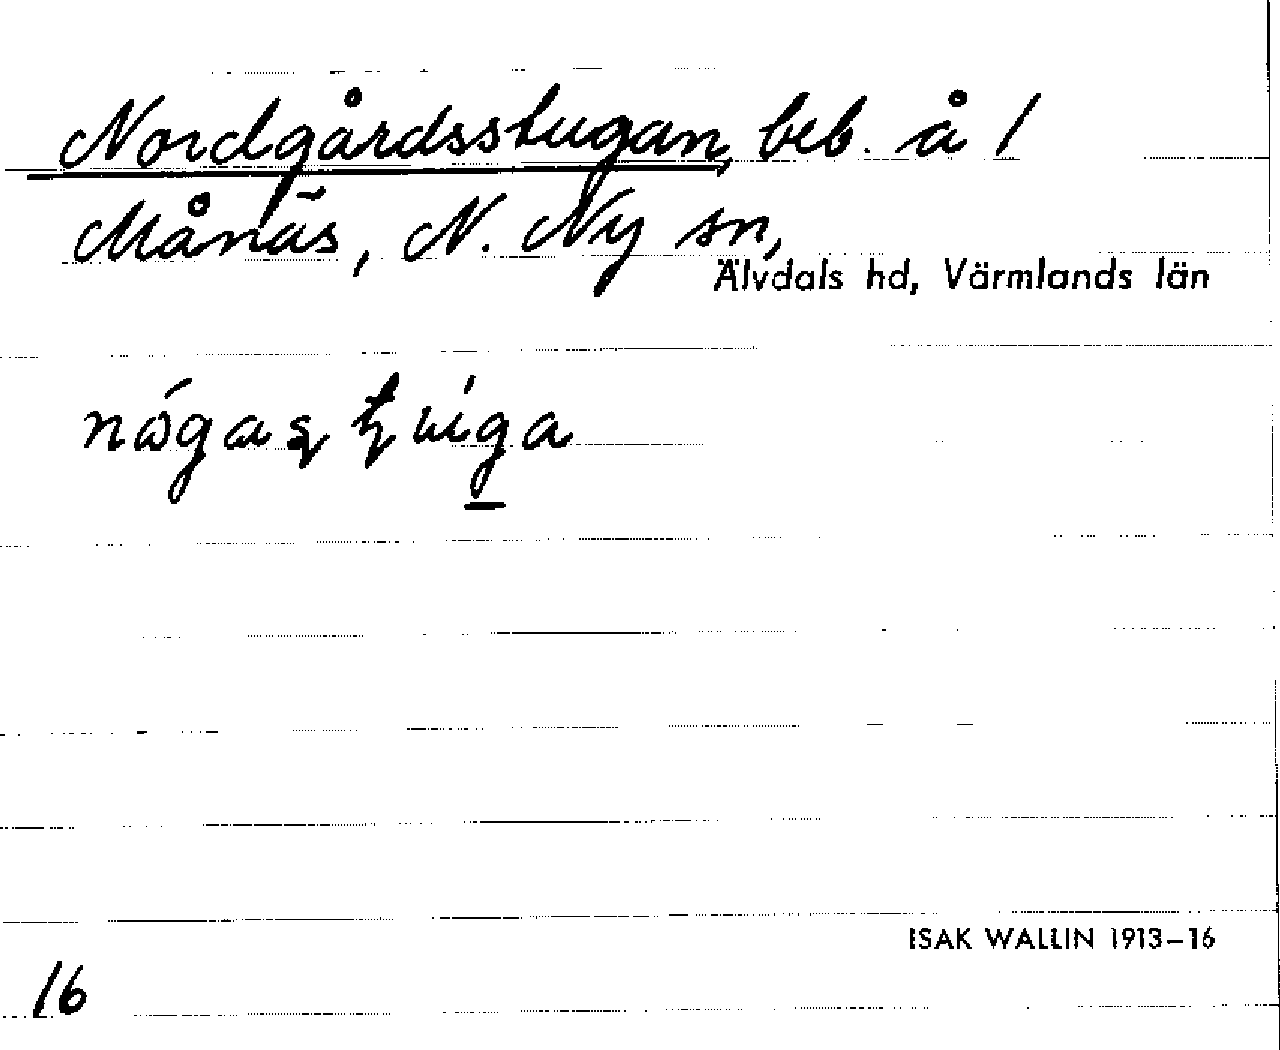 Nordgårdsstugan, beb. å 1
Månäs, N. Ny sn,
Älvdals hd, Värmlands län
ISAK WALLIN 1913–16
16